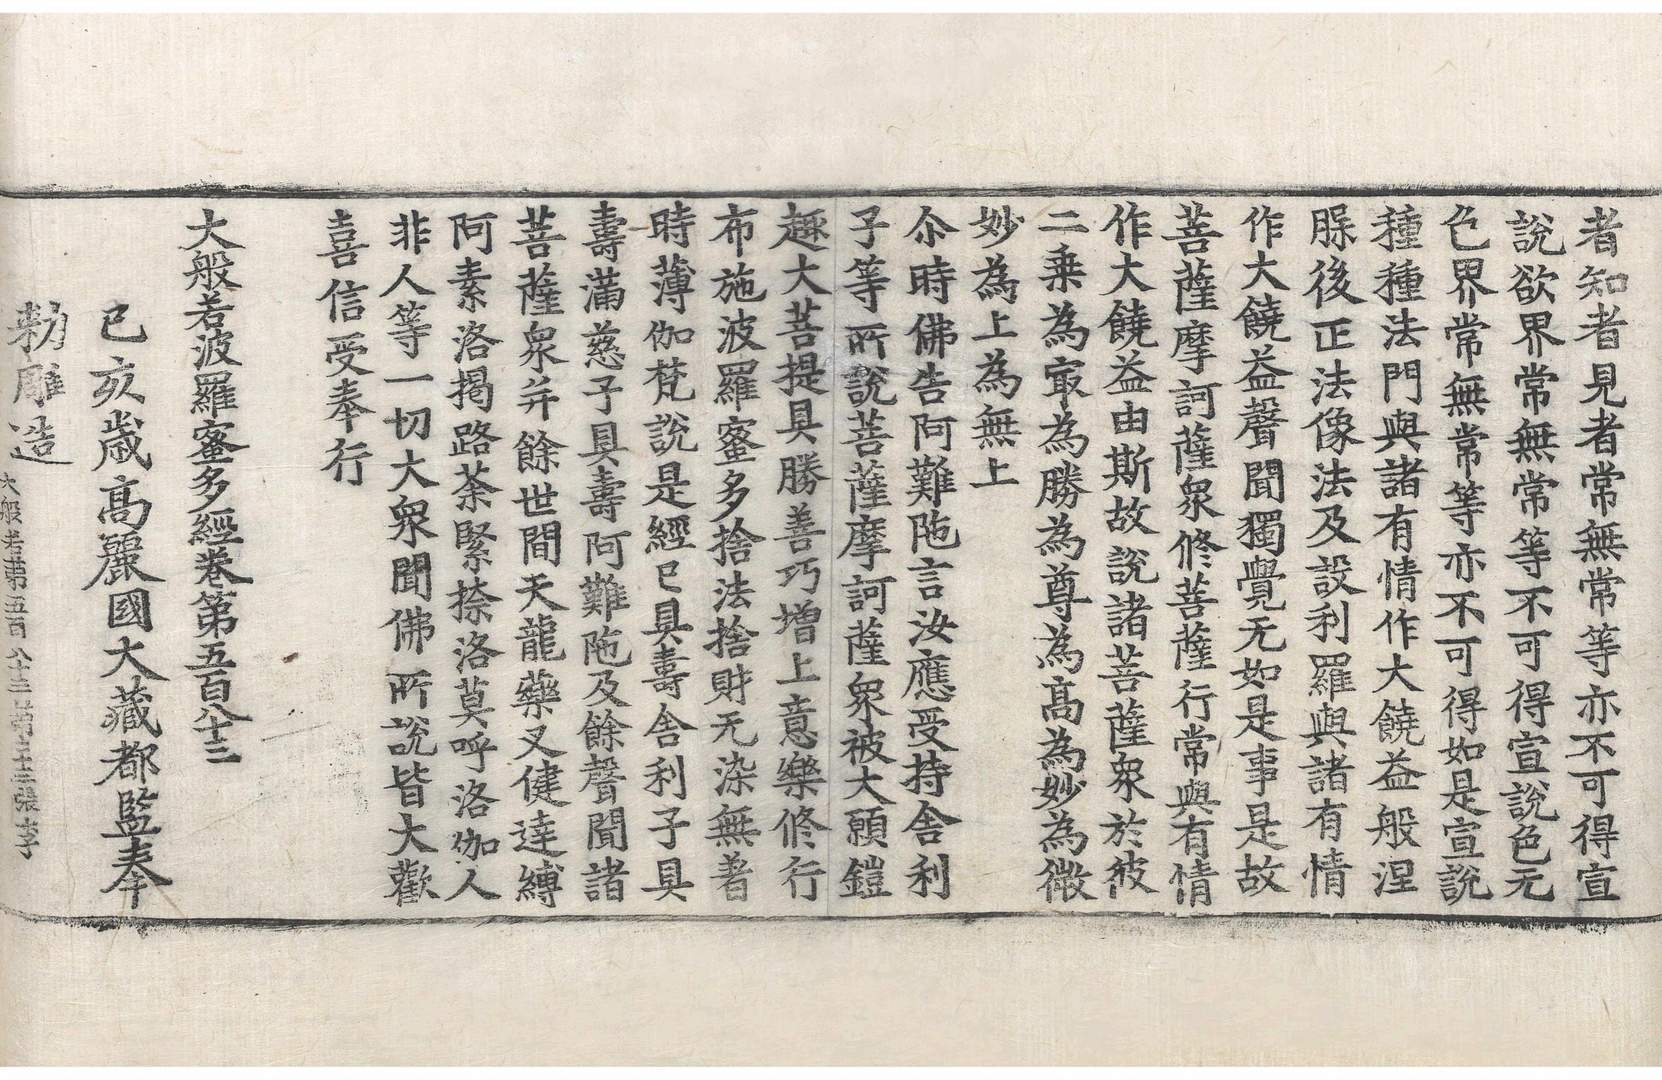 者知者見者常無常等亦不可得宣
說欲界常無常等不可得宣說色无
色界常無常等亦不可得如是宣說
種種法門與諸有情作大饒益般涅
脲後正法像法及設利羅與諸有情
作大饒益聲聞獨覺无如是事是故
菩薩摩訶薩衆修菩薩行常與有情
作大饒益由斯故說諸菩薩衆於彼
二乗為㝡為勝為尊為高為妙為微
妙為上為無上
尒時佛告阿難陁言汝應受持舍利
子等所說菩薩摩訶薩衆被大願鎧
趣大菩提具勝善巧增上意樂修行
布施波羅蜜多捨法捨財无染無著
時薄伽梵說是經已具壽舍利子具
壽滿慈子具壽阿難陁及餘聲聞諸
菩薩衆并餘世間天龍藥叉健達縛
阿素洛揭路荼緊捺洛莫呼洛伽人
非人等一切大衆聞佛所說皆大歡
喜信受奉行
大般若波羅蜜多經卷第五百八十三
己亥歲高麗國大藏都監奉
勑雕造
大般若第五百八十三第二十三張李